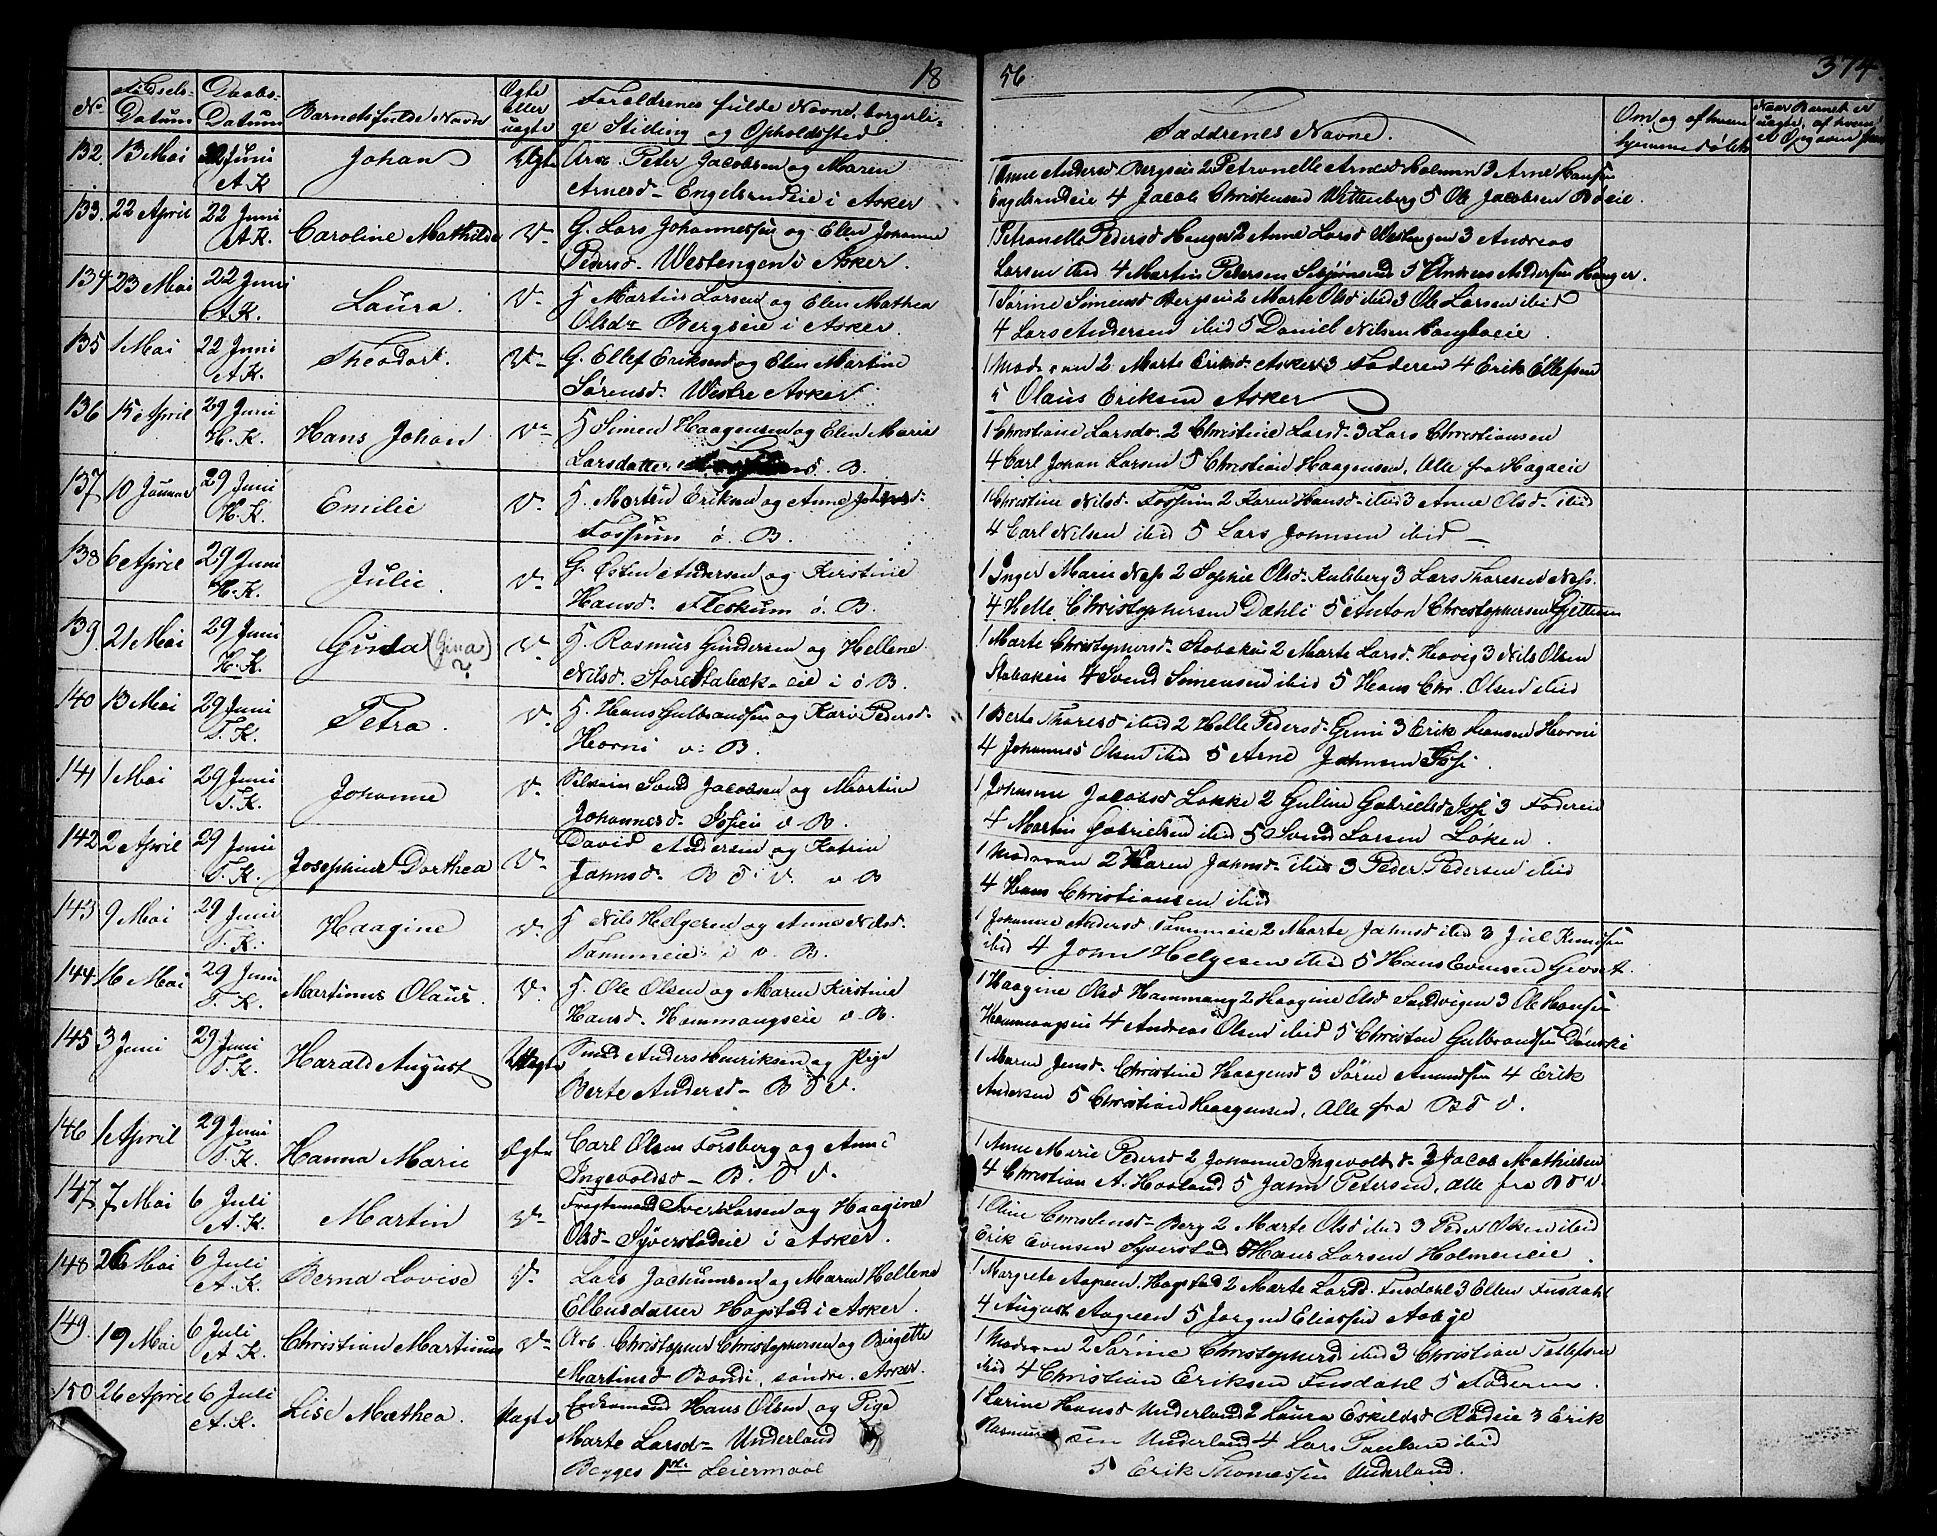 18 56 374.
No Fødsels-Datum Daabs-Datum Barnets fulde Navn Ægte eller uægte Forældrenes fulde Navne, borgerlige Stilling og Opholdssted. Faddrenes Navne. Om og af hvem hjemmedøbt
132. 13 Mai 22 Juni A.K Johan Ægte Arb. Peter Jacobsen og Maren
Arnesd- Engelsrudeie i Asker
1 Anne Andersd- Bergseie 2 Petronelle Arnesd Holmen 3 Arne Hansen
Engelsrudeie 4 Jacob Christensen Wittenberg 5 Ole Jacobsen Böeie.
133. 22 April 22 Juni A.K. Caroline Mathilde V- G. Lars Johannessen og Elen Johanne
Pedersd. Westengen i Asker.
1 Petronelle Pedersd Hanger 2 Anne Larsd Westengen 3 Andreas
Larsen ibid 4 Martin Pedersen 5 Andreas Andersen Hanger.
134 23 Mai 22 Juni A.K. Laura. V- H Martin Larsen og Elen Mathea
Olsdr Bergseie i Asker.
1 Sörine Simensd Bergseie 2 Marte Olsd ibid 3 Ole Larsen ibid
4 Lars Andersen ibid 5 Daniel Nilsen
135 1 Mai 22 Juni A.K. Theodor. V- G. Ellef Eriksen og Elen Martine
Sörensd. Westre Asker
1 Moderen 2 Marte Eriksd. Asker 3 Faderen 4 Erik Ellefsen
5 Olaus Eriksen Asker
136 15 April 29 Juni H.K. Hans Johan V- H Simen Haagensen og Elen Marie
Larsdatter ö. B.
1 Christiane Larsdr. 2 Christine Larsd- 3 Lars Christiansen
4 Carl Johan Larsen 5 Christian Haagensen. Alle fra Hagaeie
137 10 Januar 29 Juni H.K. Emilie V- H. Morten Eriksen og Anne
Fossum ö. B.
1 Christine Nilsd- Fossum 2 Karen Hansd- ibid 3 Anne Olsd- ibid
4 Carl Nilsen ibid 5 Lars Johnsen ibid -
138 6 April 29 Juni H.K. Julie V- G. Østen Andersen og Kirstine
Hansd- Fleskum ö. B.
1 Inger Marie Næss 2 Sophie Olsd- Kulsberg 3 Lars Thoresen Næss.
4 Helle Christophersen Dæhli 5 Anton Christophersen
139. 21 Mai 29 Juni H.K. Ginda (Gina) ? V- H. Rasmus Gundersen og Hellene
Nilsd. Store Stabæk-eie i ö B.
1 Marte Christophersd- Stabækeie 2 Marte Larsd. Hövig 3 Nils Olsen
Stabækeie 4 Svend Simensen ibid 5 Hans Chr. Olsen ibid
140 13 Mai 29 Juni T.K. Petra. V- H. Hans Gulbrandsen og Kari Pedersd-
v. B.
1 Berte Thoresd ibid 2 Helle Pedersd- Grini 3 Erik Hansen
4 Johannes Olsen ibid 5 Arne Johnsen
141 1 Mai 29 Juni T.K. Johanne V- Jacobsen og Martine
Johannesd- v B.
1 Johanne Jacobsd Løkke 2 Guline Gabrielsd 3 Faderen
4 Martin Gabrielsen ibid 5 Svend Larsen Løken.
142 2 April 29 Juni T.K. Josephine Dorthea V- David Andersen og Katrin
Jahnsd- B Ö V. v B
1 Moderen 2 Karen Jahnsd- ibid 3 Peder Pedersen ibid
4 Hans Christiansen ibid
143 9 Mai 29 Juni T.K. Haagine V- H Nils Helgesen og Anne Nilsd.
Tammeeie i v. B.
1 Johanne Andersd Tammeeie 2 Marte Jahnsd ibid 3 Knudsen
ibid 4 John Helgesen ibid 5 Hans Evensen
144 16 Mai 29 Juni T.K. Martinus Olaus. V- H. Ole Olsen og Maren Kirstine
Hansd- Hammangseie v. B.
1 Haagine Olsd Hammang 2 Haagine Olsd Sandvigen 3 Ole Hansen
Hammangseie 4 Andreas Olsen ibid 5 Christen Gulbrandsen Dönski
145 3 Juni 29 Juni T.K. Harald August Uægte Smed Anders Henriksen og Pige
Berte Andersd- B Ö V.
1 Maren Jensd- Christine Haagensd 3 Sören Amundsen 4 Erik
Andersen 5 Christian Haagensen, Alle fra B Ö V.
146 1 April 29 Juni T.K. Hanna Marie Ægte Carl Olsen Forsberg og Anne
Ingevoldsd- B. Ö V.
1 Anne Marie Pedersd 2 Johanne Ingevoldsd- 3 Jacob Mathiesen
4 Christian A. Hovland 5 Jahn Petersen, alle fra B Ö V.
147 7 Mai 6 Juli A.K. Martin V- Fragtemand Iver Larsen og Haagine
Olsd- Syverstadeie i Asker.
1 Oline Christensd- Berg 2 Marte Olsd ibid 3 Peder Olsen ibid
Erik Evensen Syverstad 5 Hans Larsen Holmeneie.
148 26 Mai 6 Juli A.K. Berna Lovise V- Lars Jochumsen og Maren Hellene
Ellensdatter Hogstad i Asker.
1 Margrete Aagesen. Hogstad 2 Marte Larsd. Fusdahl 3 Ellen Fusdahl
4 August Aagesen 5 Jörgen Eliassen
149. 19 Mai 6 Juli A K. Christian Martinus V- Arb. Christopher Christophersen og Birgitte
Martinsd Bondi, söndre. Asker.
1 Moderen 2 Sörine Christophersd ibid 3 Christian Tollefsen
ibid 4 Christian Eriksen Fusdahl 5 Faderen.
150 26 April 6 Juli A.K. Lise Mathea. Uægte Enkemand Hans Olsen og Pige
Marte Larsd- Underland
Begges 1ste Leiermaal
1 Karine Hansd Underland 2 Laura Eskildsd Rödeie 3 Erik
Rasmussen Underland 4 Lars Paulsen ibid
5 Erik Thomessen Underland.